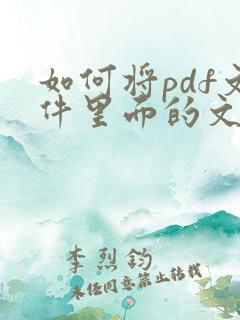 如何将pdf文
件里面的文
李烈钧
未经同意禁止转载